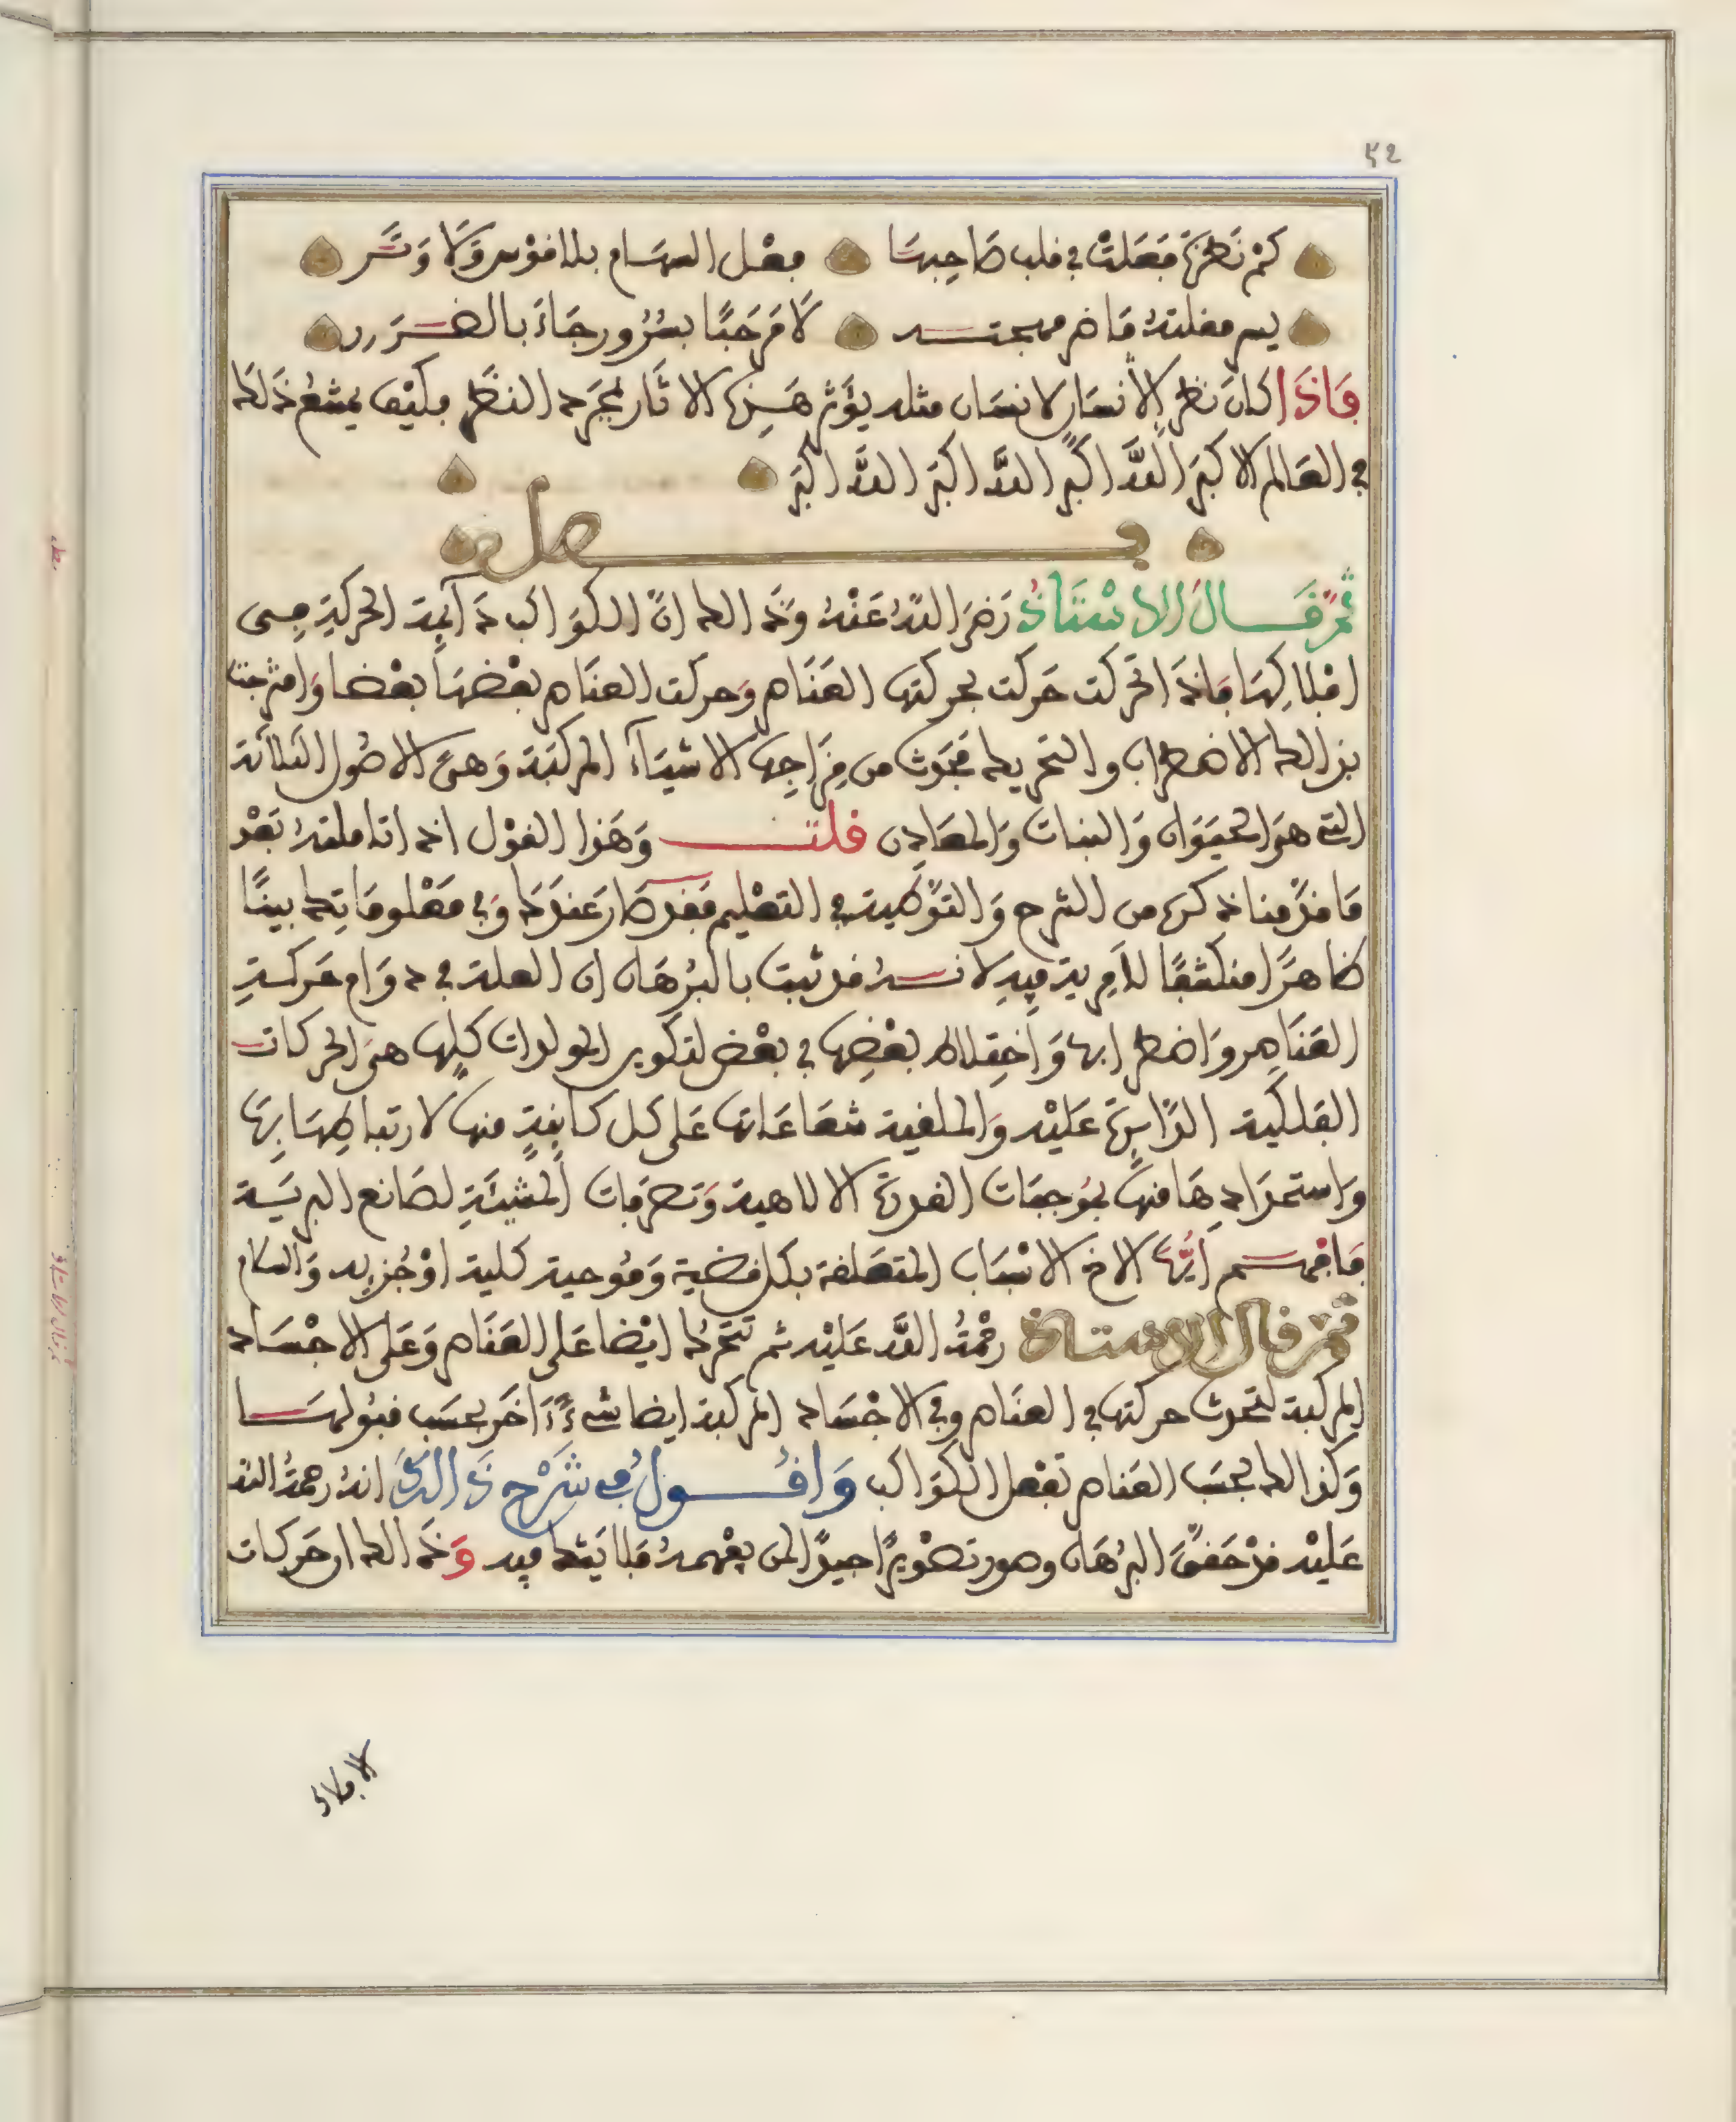 ٤٢
كَمْ نَظْرَة فَعَلَتْ فِي قلب صَاحِبهَا فِعْل السهَام بلا قَوْس وَلَا وَتَر
يسر مقلتهُ مَا ضر مهجته لَا مَرْحَبًا بسُرُور جَاءَ بالضَّرَر
فَاذَا كانَ نظر الأنسان لانسَان مثله يؤثر هَذِه الاثَار بمجرد النظر فكيْف يمنع ذلك
في العَالم الاكبَر اللَّه اكْبَر اللَّه اكبَر اللَّه اكبَر
فصل
ثمّ قَالَ الاسْتَاذُ رَضيَ اللهُ عَنْهُ وَذَلك انّ الكوَاكب دَآئِمة الحركة في
افلاكِهَا فاذَا تحركت حَركت بحركتهَا العَنَاصر وَحركت العنَاصر بعْضهَا بعْضا وَامتزجت
بذالك الاضطراب والتحريك فحَدث من مِزَاجِهَا الاشيَآء المركبَة وَهىَ الاصُول الثلاثة
التي هىَ الحيَوَان وَالنبات وَالمعَادن قلت وَهَذا القوْل اذا تاملتهُ بَعْد
مَا قدّمنا ذكره من الشرح وَالتوْطية في التعْليم فقد صَار عندَك وَفي مَعْلومَاتِك بينًا
ظاهرًا منكشفًا لا مرية فِيهِ لانهُ قد ثبت بالبُرهَان ان العلة في دوَام حَركةِ
العَنَاصر وَاضطرابها وَاختِلاط بعْضِهَا في بعْض لتكوين المولدات كلهَا هىَ الحركات
الفلكية الدّائِرة عَليْه وَالملقية شعَاعَاتها عَلى كل كائِنَةٍ منها لارتباطِهَا بِهَا
وَاستمدَادِهَا منهَا بموجبَات القدرة الالاهية وَتصرفات المشيئَةِ لصَانع البريَّة
فَافهم أَيُّهَا الاخ الاسْبَاب المتعَلقة بكل قضية وَمُوجبة كلية اوْ جُزئية وَالسلام
ثم قال الاستاذ رحْمَةُ اللَّه عَليْه ثم تتحرك ايْضا عَلى العَنَاصر وَعَلى الاجْسَاد
المركبة لتحدث حركتهَا في العنَاصر وفي الاجْسَاد المركبة ايضا شىءً آخَر بحسَب قبُولهَا
وَكذالك بحسَب العَنَاصر تفْعل الكوَاكب وَاقُول في شَرْح ذَالكَ انهُ رحمةُ الله
عَليْه قدْ حَققَ البرُهَان وصور تصْويرًا جيدًا لمن يفْهمهُ فلا يَشك فيه وَذَالك ان حَركات
الافلاك